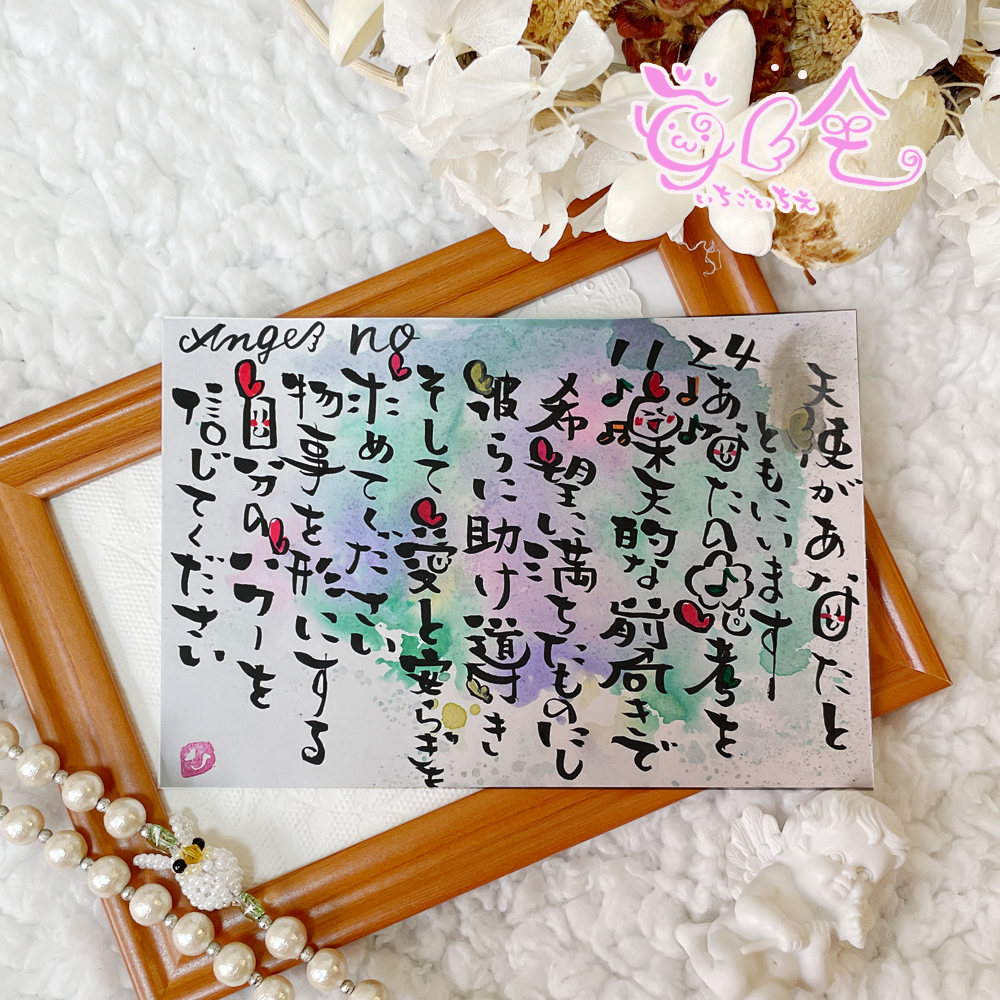 いちごいちえ
Angel no 1124
天使があなたと
ともにいます
あなたの思考を
楽天的な前向きで
希望に満ちたものにし
彼らに助け導き
そして愛と安らぎを
求めてください
物事を形にする
自分のパワーを
信じてください